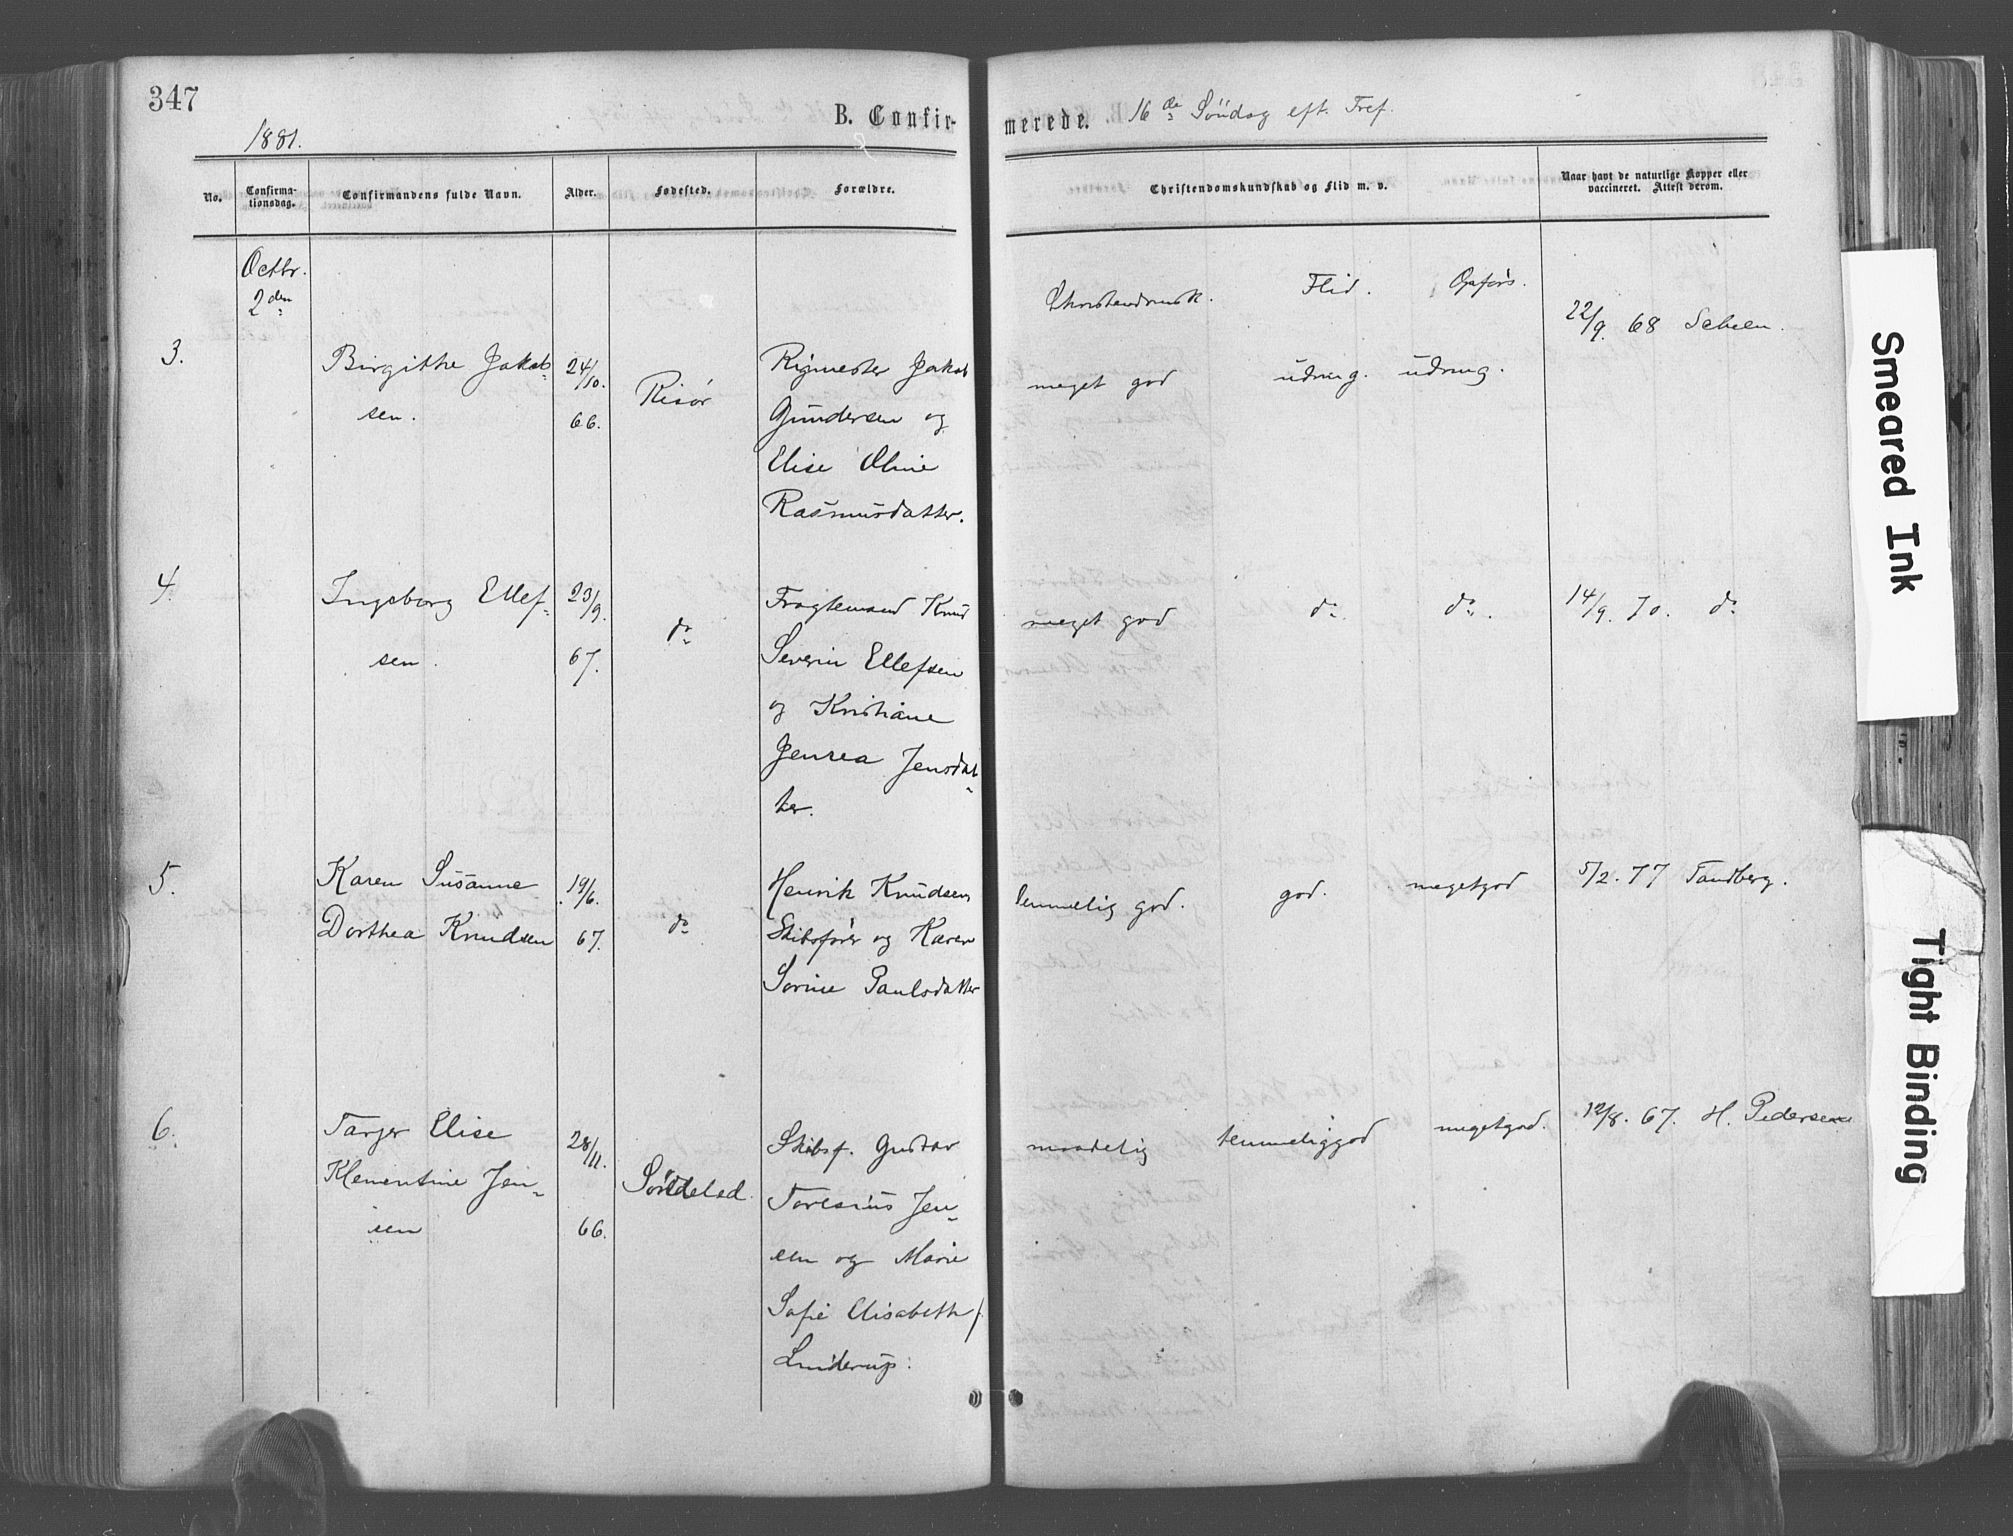 347
B. Confir-
merede. 16de Söndag eft. Tref.
1881.
No.
Confirma-
tionsdag.
Confirmandens fulde Navn.
Alder.
Fødested.
Forældre.
Christendomskundskab og Flid m. v.
Naar havt de naturlige Kopper eller
vaccineret. Attest derom.
Octbr.
2den
Christendomsk. Flid. Opførs.
3.
Birgithe Jakob-
sen.
24/10.
66.
Risør
Rigmester Jakob
Gundersen og
Elise Oline
Rasmusdatter.
meget god udmg. udmg.
22/9 68 Scheen.
4.
Ingeborg Ellef-
sen.
23/9.
67.
do
Fragtemand Knud
Severin Ellefsen
og Kristiane
Jensea Jensdat-
ter.
meget god do do.
14/9. 70. do
5.
Karen Susanne
Dorthea Knudsen
19/6.
67.
do
Henrik Knudsen
Skibsfører og Karen
Sørine Paulsdatter
temmelig god. god. megetgod
5/2. 77 Tandberg.
6.
Tarjer Elise
Klementine Jen-
sen
28/11.
66.
Søndeled.
Skibsf. Gustav
Toresius Jen-
sen og Marie
Sofie Elisabeth f.
Linderup.
maadelig temmeliggod megetgod.
12/8. 67. H. Pedersen
Smeared Ink
Tight Binding